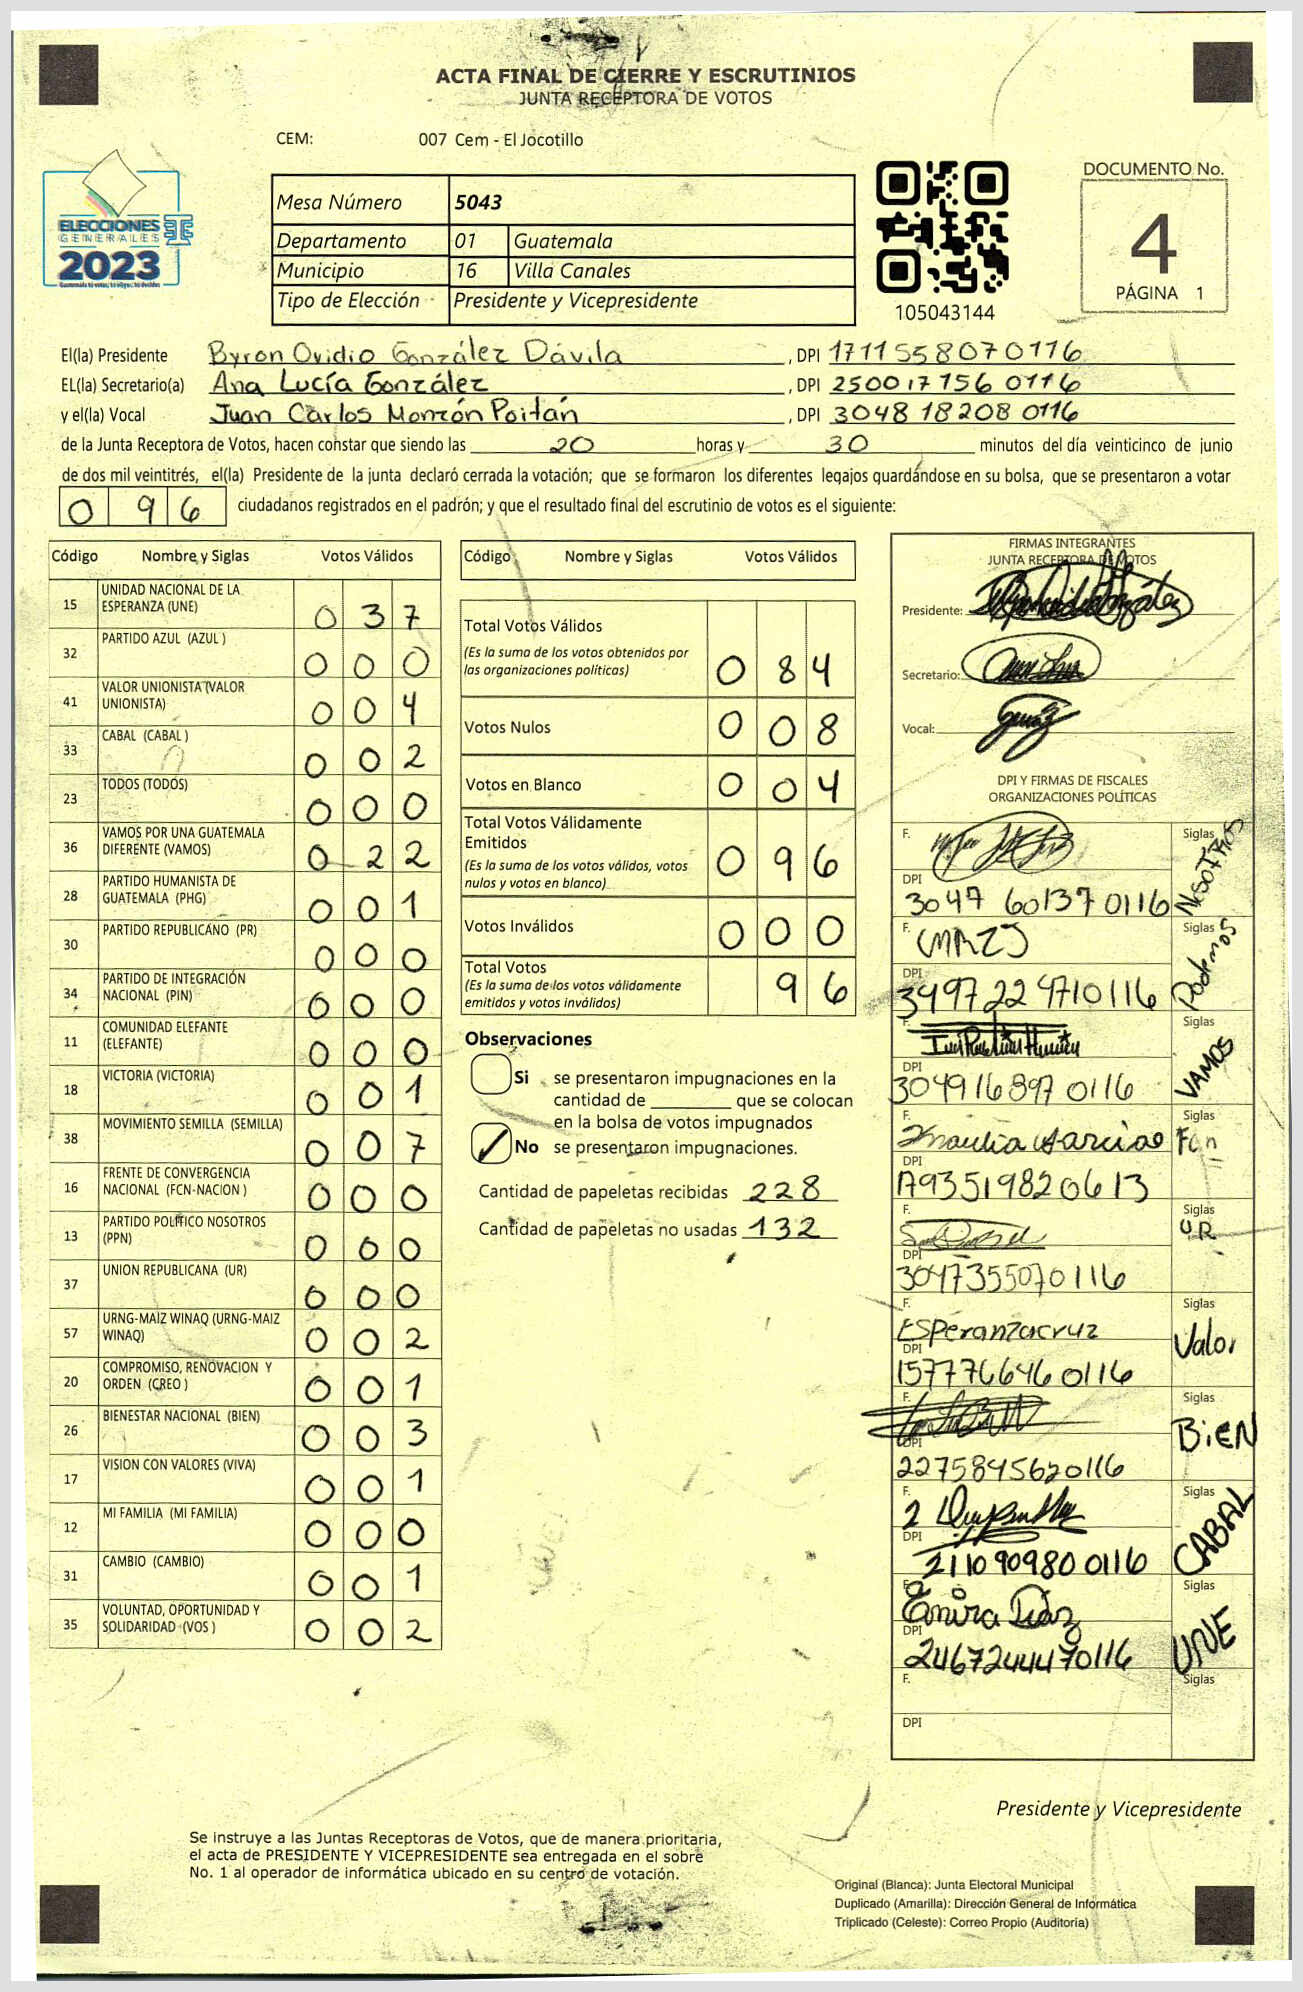 ACTA FINAL DE CIERRE Y ESCRUTINIOS
JUNTA RECEPTORA DE VOTOS
CEM: 007 Cem - El Jocotillo
ELECCIONES
GENERALES
2023
Mesa Número 5043
Departamento 01 Guatemala
Municipio 16 Villa Canales
Tipo de Elección Presidente y Vicepresidente
105043144
DOCUMENTO No.
4
PÁGINA 1
El(la) Presidente Byron Ovidio González Dávila , DPI 1711558070116
EL(la) Secretario(a) Ana Lucía González , DPI 250017756 0116
y el(la) Vocal Juan Carlos Monzón Poitán , DPI 3048 18208 0116
de la Junta Receptora de Votos, hacen constar que siendo las 20 horas y 30 minutos del día veinticinco de junio
de dos mil veintitrés, el(la) Presidente de la junta declaró cerrada la votación; que se formaron los diferentes legajos guardándose en su bolsa, que se presentaron a votar
0 9 6 ciudadanos registrados en el padrón; y que el resultado final del escrutinio de votos es el siguiente:
Código Nombre y Siglas Votos Válidos
15 UNIDAD NACIONAL DE LA ESPERANZA (UNE) 0 3 7
32 PARTIDO AZUL (AZUL ) 0 0 0
41 VALOR UNIONISTA (VALOR UNIONISTA) 0 0 4
33 CABAL (CABAL ) 0 0 2
23 TODOS (TODOS) 0 0 0
36 VAMOS POR UNA GUATEMALA DIFERENTE (VAMOS) 0 2 2
28 PARTIDO HUMANISTA DE GUATEMALA (PHG) 0 0 1
30 PARTIDO REPUBLICANO (PR) 0 0 0
34 PARTIDO DE INTEGRACIÓN NACIONAL (PIN) 0 0 0
11 COMUNIDAD ELEFANTE (ELEFANTE) 0 0 0
18 VICTORIA (VICTORIA) 0 0 1
38 MOVIMIENTO SEMILLA (SEMILLA) 0 0 7
16 FRENTE DE CONVERGENCIA NACIONAL (FCN-NACION ) 0 0 0
13 PARTIDO POLÍTICO NOSOTROS (PPN) 0 0 0
37 UNION REPUBLICANA (UR) 0 0 0
57 URNG-MAIZ WINAQ (URNG-MAIZ WINAQ) 0 0 2
20 COMPROMISO, RENOVACION Y ORDEN (CREO ) 0 0 1
26 BIENESTAR NACIONAL (BIEN) 0 0 3
17 VISION CON VALORES (VIVA) 0 0 1
12 MI FAMILIA (MI FAMILIA) 0 0 0
31 CAMBIO (CAMBIO) 0 0 1
35 VOLUNTAD, OPORTUNIDAD Y SOLIDARIDAD (VOS ) 0 0 2
Código Nombre y Siglas Votos Válidos
Total Votos Válidos
(Es la suma de los votos obtenidos por
las organizaciones políticas) 0 8 4
Votos Nulos 0 0 8
Votos en Blanco 0 0 4
Total Votos Válidamente
Emitidos
(Es la suma de los votos válidos, votos
nulos y votos en blanco) 0 9 6
Votos Inválidos 0 0 0
Total Votos
(Es la suma de los votos válidamente
emitidos y votos inválidos) 9 6
Observaciones
Si se presentaron impugnaciones en la
cantidad de ________ que se colocan
en la bolsa de votos impugnados
No se presentaron impugnaciones.
Cantidad de papeletas recibidas 228
Cantidad de papeletas no usadas 132
FIRMAS INTEGRANTES
JUNTA RECEPTORA DE VOTOS
Presidente:
Secretario:
Vocal:
DPI Y FIRMAS DE FISCALES
ORGANIZACIONES POLÍTICAS
F. Siglas NOSOTROS
DPI 3047 60137 0116
F. Siglas Podemos
DPI 3497 22 4710116
F. Siglas VAMOS
DPI 304916897 0116
F. Siglas Fcn
DPI 1793519820613
F. Siglas UR
DPI 3047355070116
F. Esperanzacruz Siglas Valor
DPI 157776646 0116
F. Siglas BiEN
DPI 2275845620116
F. Siglas CABAL
DPI 211090980 0116
F. Siglas UNE
DPI 2467244470116
F. Siglas
DPI
Presidente y Vicepresidente
Se instruye a las Juntas Receptoras de Votos, que de manera prioritaria,
el acta de PRESIDENTE Y VICEPRESIDENTE sea entregada en el sobre
No. 1 al operador de informática ubicado en su centro de votación.
Original (Blanca): Junta Electoral Municipal
Duplicado (Amarilla): Dirección General de Informática
Triplicado (Celeste): Correo Propio (Auditoría)